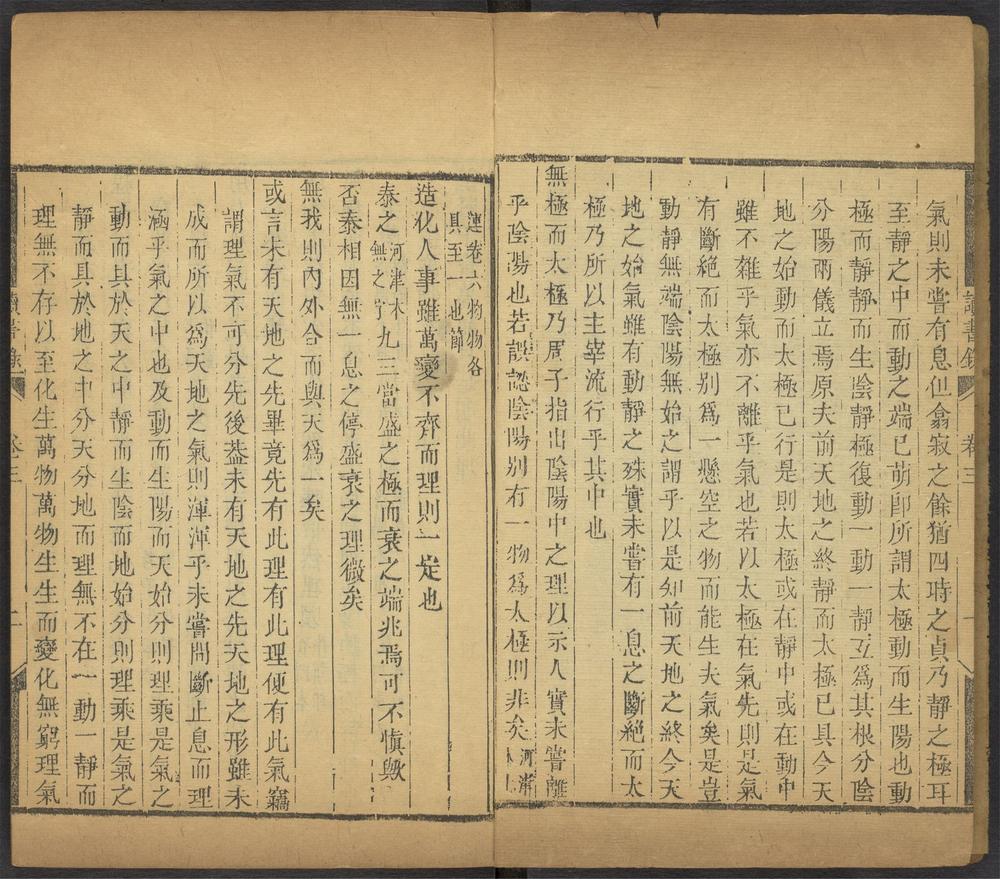 讀書錄 卷三 一
氣則未嘗有息但翕寂之餘猶四時之貞乃靜之極耳
至靜之中而動之端已萌卽所謂太極動而生陽也動
極而靜靜而生陰靜極復動一動一靜互爲其根分陰
分陽兩儀立焉原夫前天地之終靜而太極已具今天
地之始動而太極已行是則太極或在靜中或在動中
雖不雜乎氣亦不離乎氣也若以太極在氣先則是氣
有斷絕而太極別爲一懸空之物而能生夫氣矣是豈
動靜無端陰陽無始之謂乎以是知前天地之終今天
地之始氣雖有動靜之殊實未嘗有一息之斷絕而太
極乃所以主宰流行乎其中也
無極而太極乃周子指出陰陽中之理以示人實未嘗離
乎陰陽也若誤認陰陽別有一物爲太極則非矣河津
本
連卷六物物各
具至一也節
造化人事雖萬變不齊而理則一定也
泰之河津木
無之字九三當盛之極而衰之端兆焉可不愼歟
否泰相因無一息之停盛衰之理微矣
無我則內外合而與天爲一矣
或言未有天地之先畢竟先有此理有此理便有此氣竊
謂理氣不可分先後葢未有天地之先天地之形雖未
成而所以爲天地之氣則渾渾乎未嘗間斷止息而理
涵乎氣之中也及動而生陽而天始分則理乘是氣之
動而具於天之中靜而生陰而地始分則理乘是氣之
靜而具於地之中分天分地而理無不在一動一靜而
理無不存以至化生萬物萬物生生而變化無窮理氣
讀書錄 卷三 二